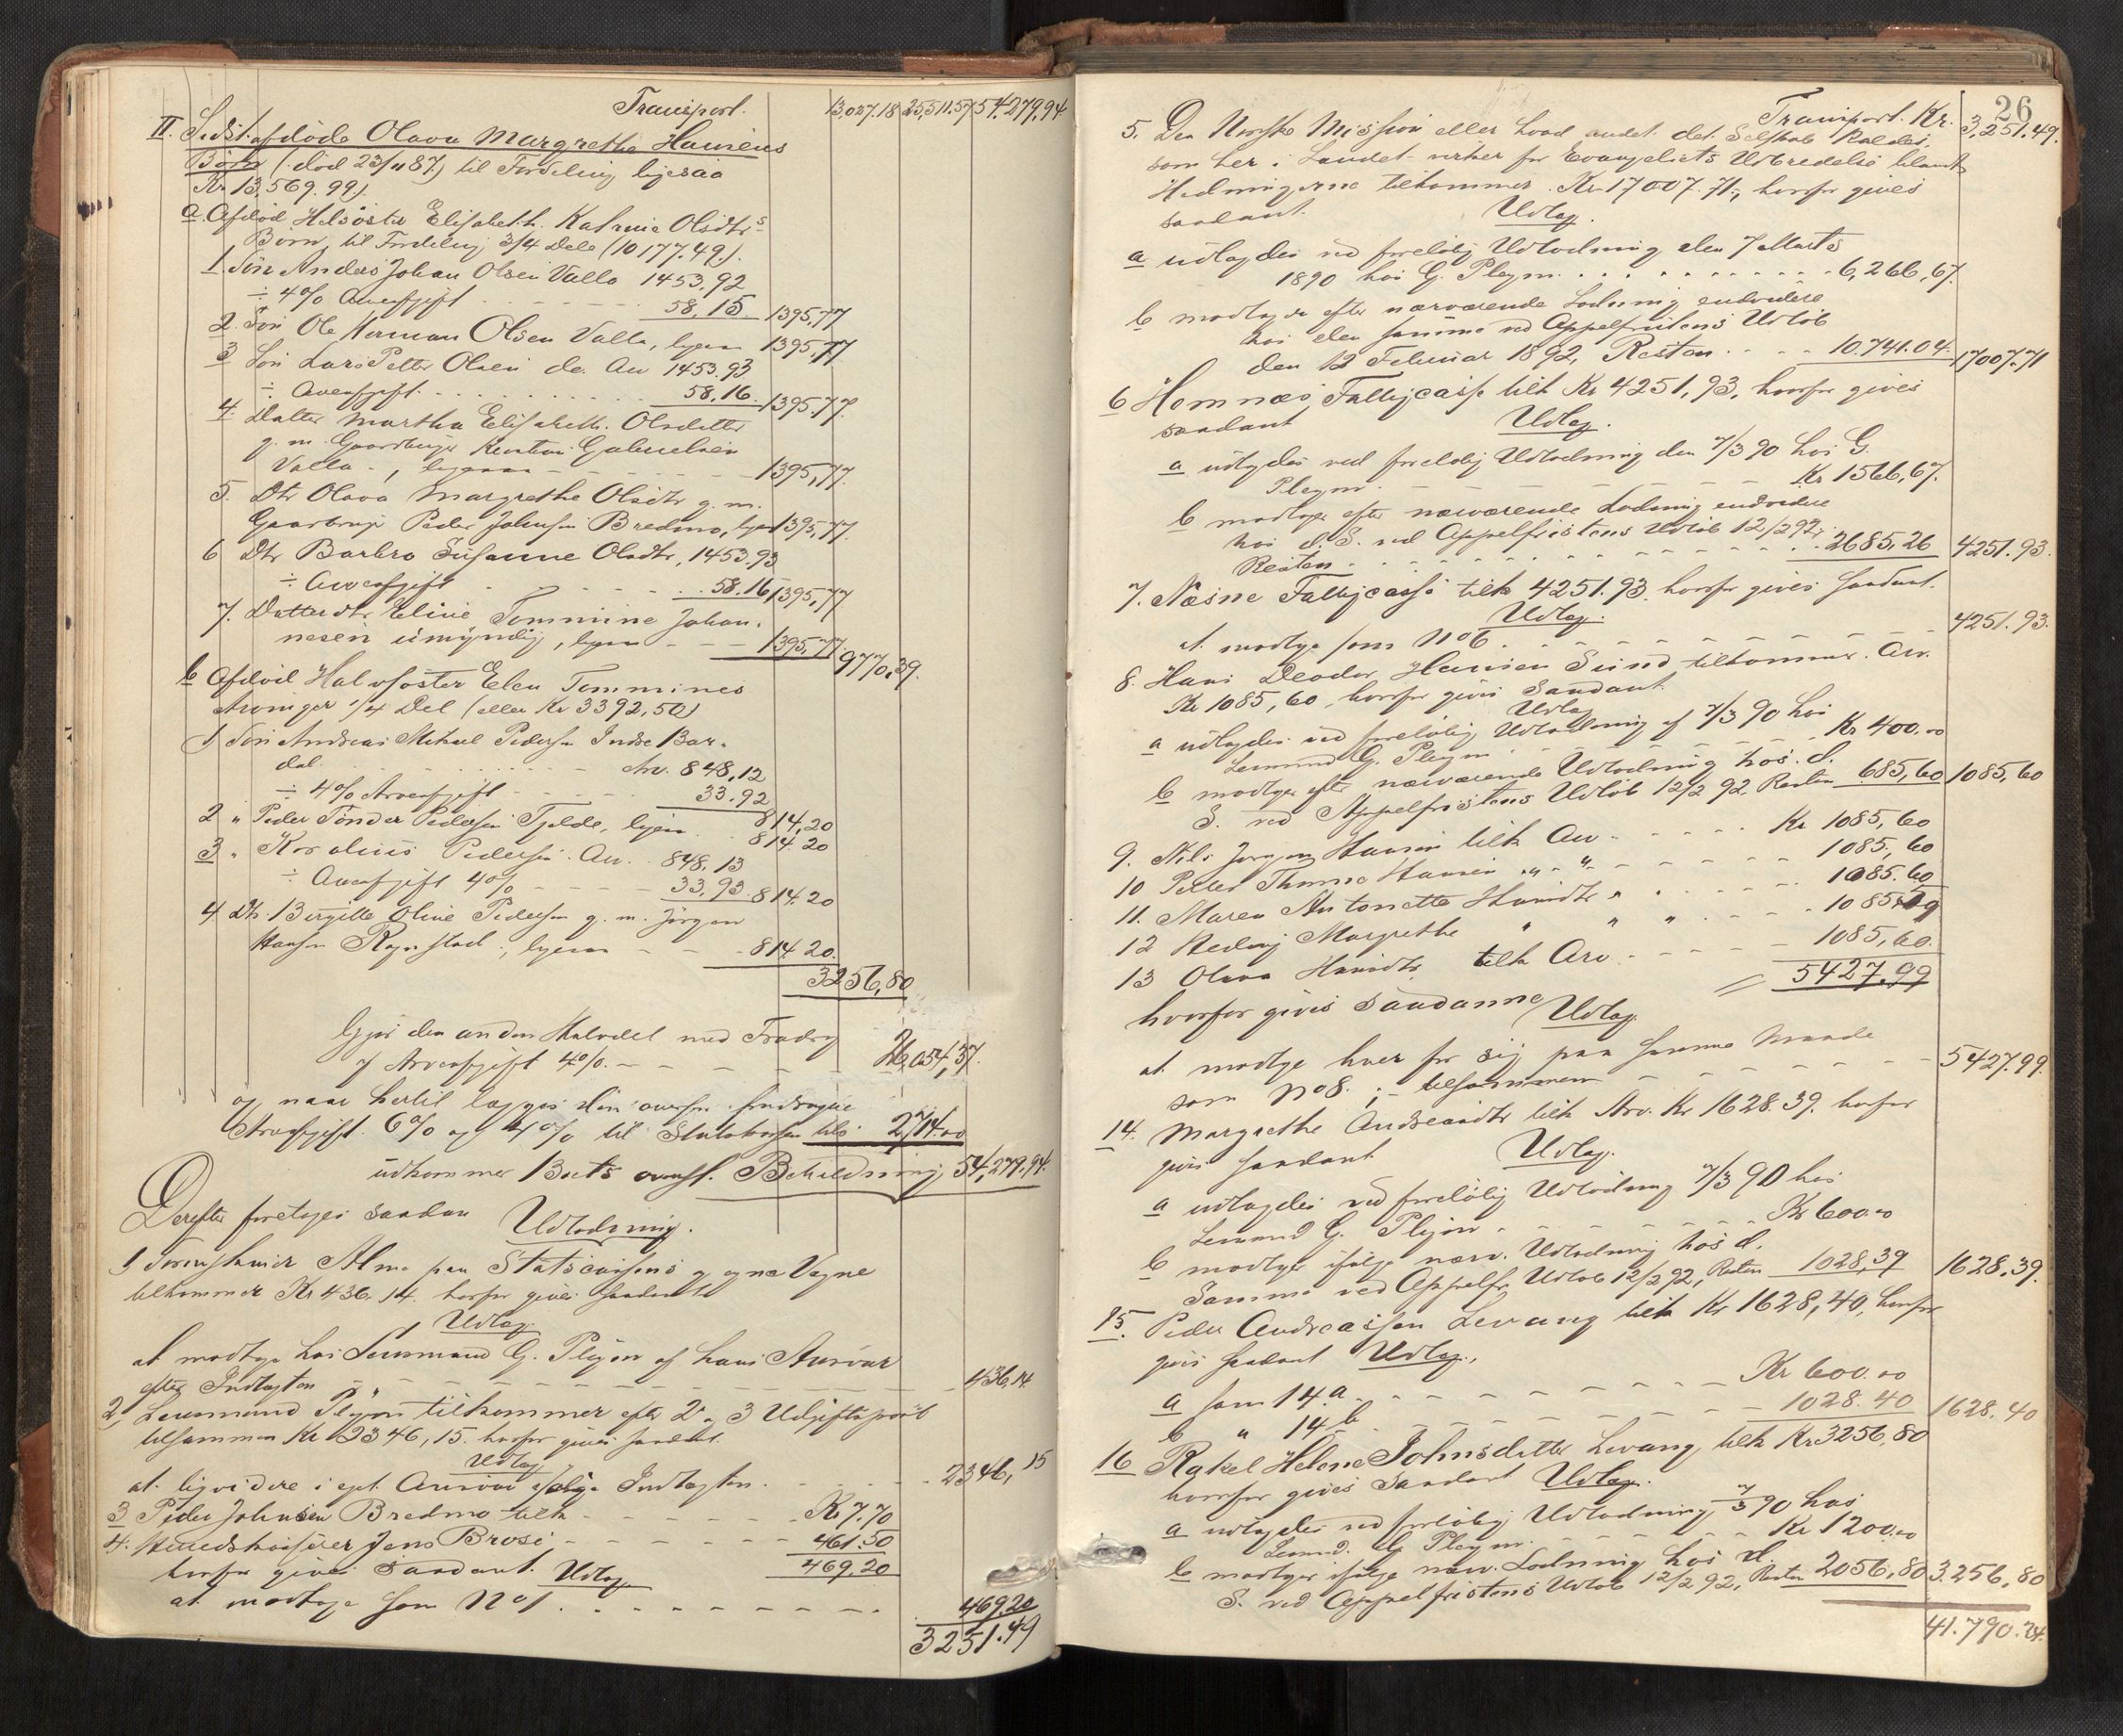 Transport. 13,027.18 25511.57 54,279.94
II. Sidst afdöde Olava Margrethe Hansens
Börn (död 23/11 87.) til Fordeling ligesaa
Kr. 13,569.99).
a. Afdöd Helsöster Elisabeth Katrine Olsdtrs
Börn til Fordeling 3/4 Dele (10177.49.).
1. Sön Anders Johan Olsen Valla 1453.92
÷ 4% Arveafgift 58.15 1395.77
2. Sön Ole Herman Olsen Valla, ligesaa 1395.77
3 Sön Lars Petter Olsen do. Arv 1453.93
÷ Arveafgift 58.16 1395.77.
4. Datter Martha Elisabeth Olsdatter
g. m. Gaardbruger Kristian Gabrielsen
Valla, ligesaa 1395,77.
5. Dtr Olava Margrethe Olsdtr g. m.
Gaardbruger Peder Johnsen Bredmo, ligesaa 1395,77.
6 Dtr Barbro Susanne Olsdtr, 1453.93
÷ Arveafgift 58.16 1395,77
7. Datterdtr Eline Tommine Johan-
nesen umyndig, ligesaa 1395,77 9770.39.
b Afdöd Halvsöster Elen Tommines
Arvinger 1/4 Del (eller Kr 3392,50)
1 Sön Andreas Mikael Pedersen Indre Bar-
dal. Arv. 848,12
÷ 4% Arveafgift 33.92 814,20
2 " Peder Tönder Pedersen Tjelde, ligesaa 814.20
3 " Kornelius Pedersen Arv. 848,13
÷ Arveafgift 4% 33,93 814.20
4 Dtr. Birgitte Oline Pedersen g. m. Jörgen
Hansen Rognstad, ligesaa 814.20.
3256,80
Gjör den anden Halvdel med Fradrag
af Arveafgift 4%. 26,054,37.
og naar hertil lægges den ovenfor fradragne
Arveafgift 6% og 4% til Statskassen tils. 2714.00
udkommer Boets ovenst. Beholdning 54,279.94.
Derefter foretages saadan Udlodning.
1 Sorenskriver Alme paa Statscassens og egne Vegne
tilkommer Kr 436.14. hvorfor gives saadant
Udlæg
at modtage hos Lensmand G. Plejm af hans Ansvar
efter Indtægten 436.14.
2, Lensmand Plejm tilkommer efter 2. og 3 Udgiftspost
tilsammen Kr 2346,15. hvorfor gives saadant
Udlæg
at liqvidere i eget Ansvar ifølge Indtægten. 2346,15
3 Peder Johnsen Bredmo tilk. Kr 7.70
4. Herredskasserer Jens Brose 461.50
hvorfor gives saadant Udlæg 469.20
at modtage som No 1. 469.20
3251.49
26
Transport. Kr. 3,251.49.
5. Den Norske Mission eller hvad andet det Selskab kaldes,
som her i Landet virker for Evangeliets Udbredelse blandt
Hedningerne tilkommer Kr. 17007.71, hvorfor gives
saadant Udlæg.
a udlagdes ved foreløbig Udlodning den 7 Marts
1890 hos G. Plejm. 6,266,67.
b modtager efter nærværende Lodning endvidere
hos den samme ved Appelfristens Udløb
den 12 Februar 1892, Resten 10.741.04. 17007.71
6 Hemnæs Fattigcasse tilk Kr 4251,93, hvorfor gives
saadant Udlæg.
a udlagdes ved foreløbig Udlodning den 7/3 90 hos G.
Plejm Kr 1566,67.
b modtager efter nærværende Lodning endvidere
hos d. S. ved Appelfristens Udløb 12/2 92,
Resten 2685.26 4251.93.
7. Næsne Fattigcasse tilk 4251.93 hvorfor gives saadant
Udlæg.
at modtage som No 6 4251.93.
8. Hans Deodor Hansen Sund tilkommer Arv.
Kr 1085,60, hvorfor gives saadant
Udlæg
a udlagdes ved foreløbig Udlodning af 7/3 90 hos
Lensmand G. Plejm Kr 400.00
b modtager efter nærværende Udlodning hos d.
S. ved Appelfristens Udløb 12/2 92, Resten 685,60 1085,60
9. Nils Jørgen Hansen tilk Arv Kr 1085,60
10 Petter Thomas Hansen " " 1085,60
11. Maren Antonette Hansdtr " 1085.60
12 Hedvig Margrethe " " " 1085.59
13 Olava Hansdtr tilk Arv 1085,60.
5427.99
hvorfor gives saadanne Udlæg.
at modtage hver for sig paa samme Maade
som No 8. ; tilsammen 5427.99.
14. Margrethe Andreasdtr tilk Arv. Kr 1628.39. hvorfor
gives saadant Udlæg.
a udlagdes ved foreløbig Udlodning 7/3 90 hos
Lensmand G. Plejm Kr 600.00
b modtager ifølge nærv. Udlodning hos d.
Samme ved Appelfr. Udløb 12/2 92, Resten 1028,39 1628.39.
15. Peder Andreassen Levang tilk Kr 1628,40, hvorfor
gives saadant Udlæg.
a som 14.a Kr 600.00
b " 14 b 1028.40 1628.40
16 Rakel Helene Johnsdatter Levang tilk Kr 3256,80
hvorfor gives saadant Udlæg.
a udlagdes ved foreløbig Udlodning 7/3 90 hos
Lensmd. G Plejm Kr 1200.00
b modtager ifølge nærv. Lodning hos d.
S. ved Appelfristens Udløb 12/2 92, Resten 2056,80 3.256,80
41.790.24.